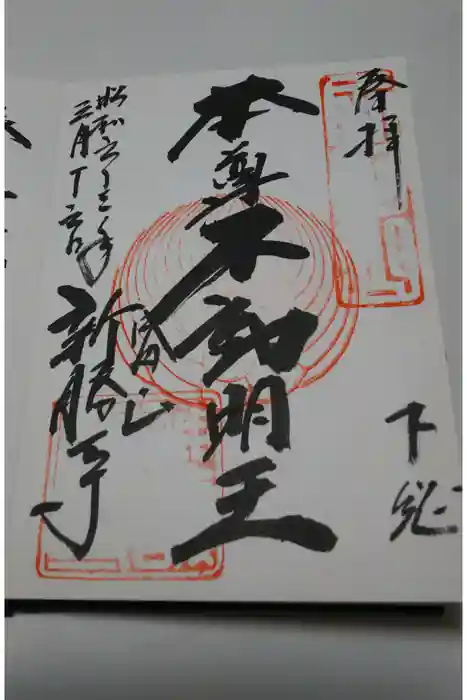 奉拝
下総
本尊不動明王
成田山
新勝寺
昭和六十三年
三月十六日